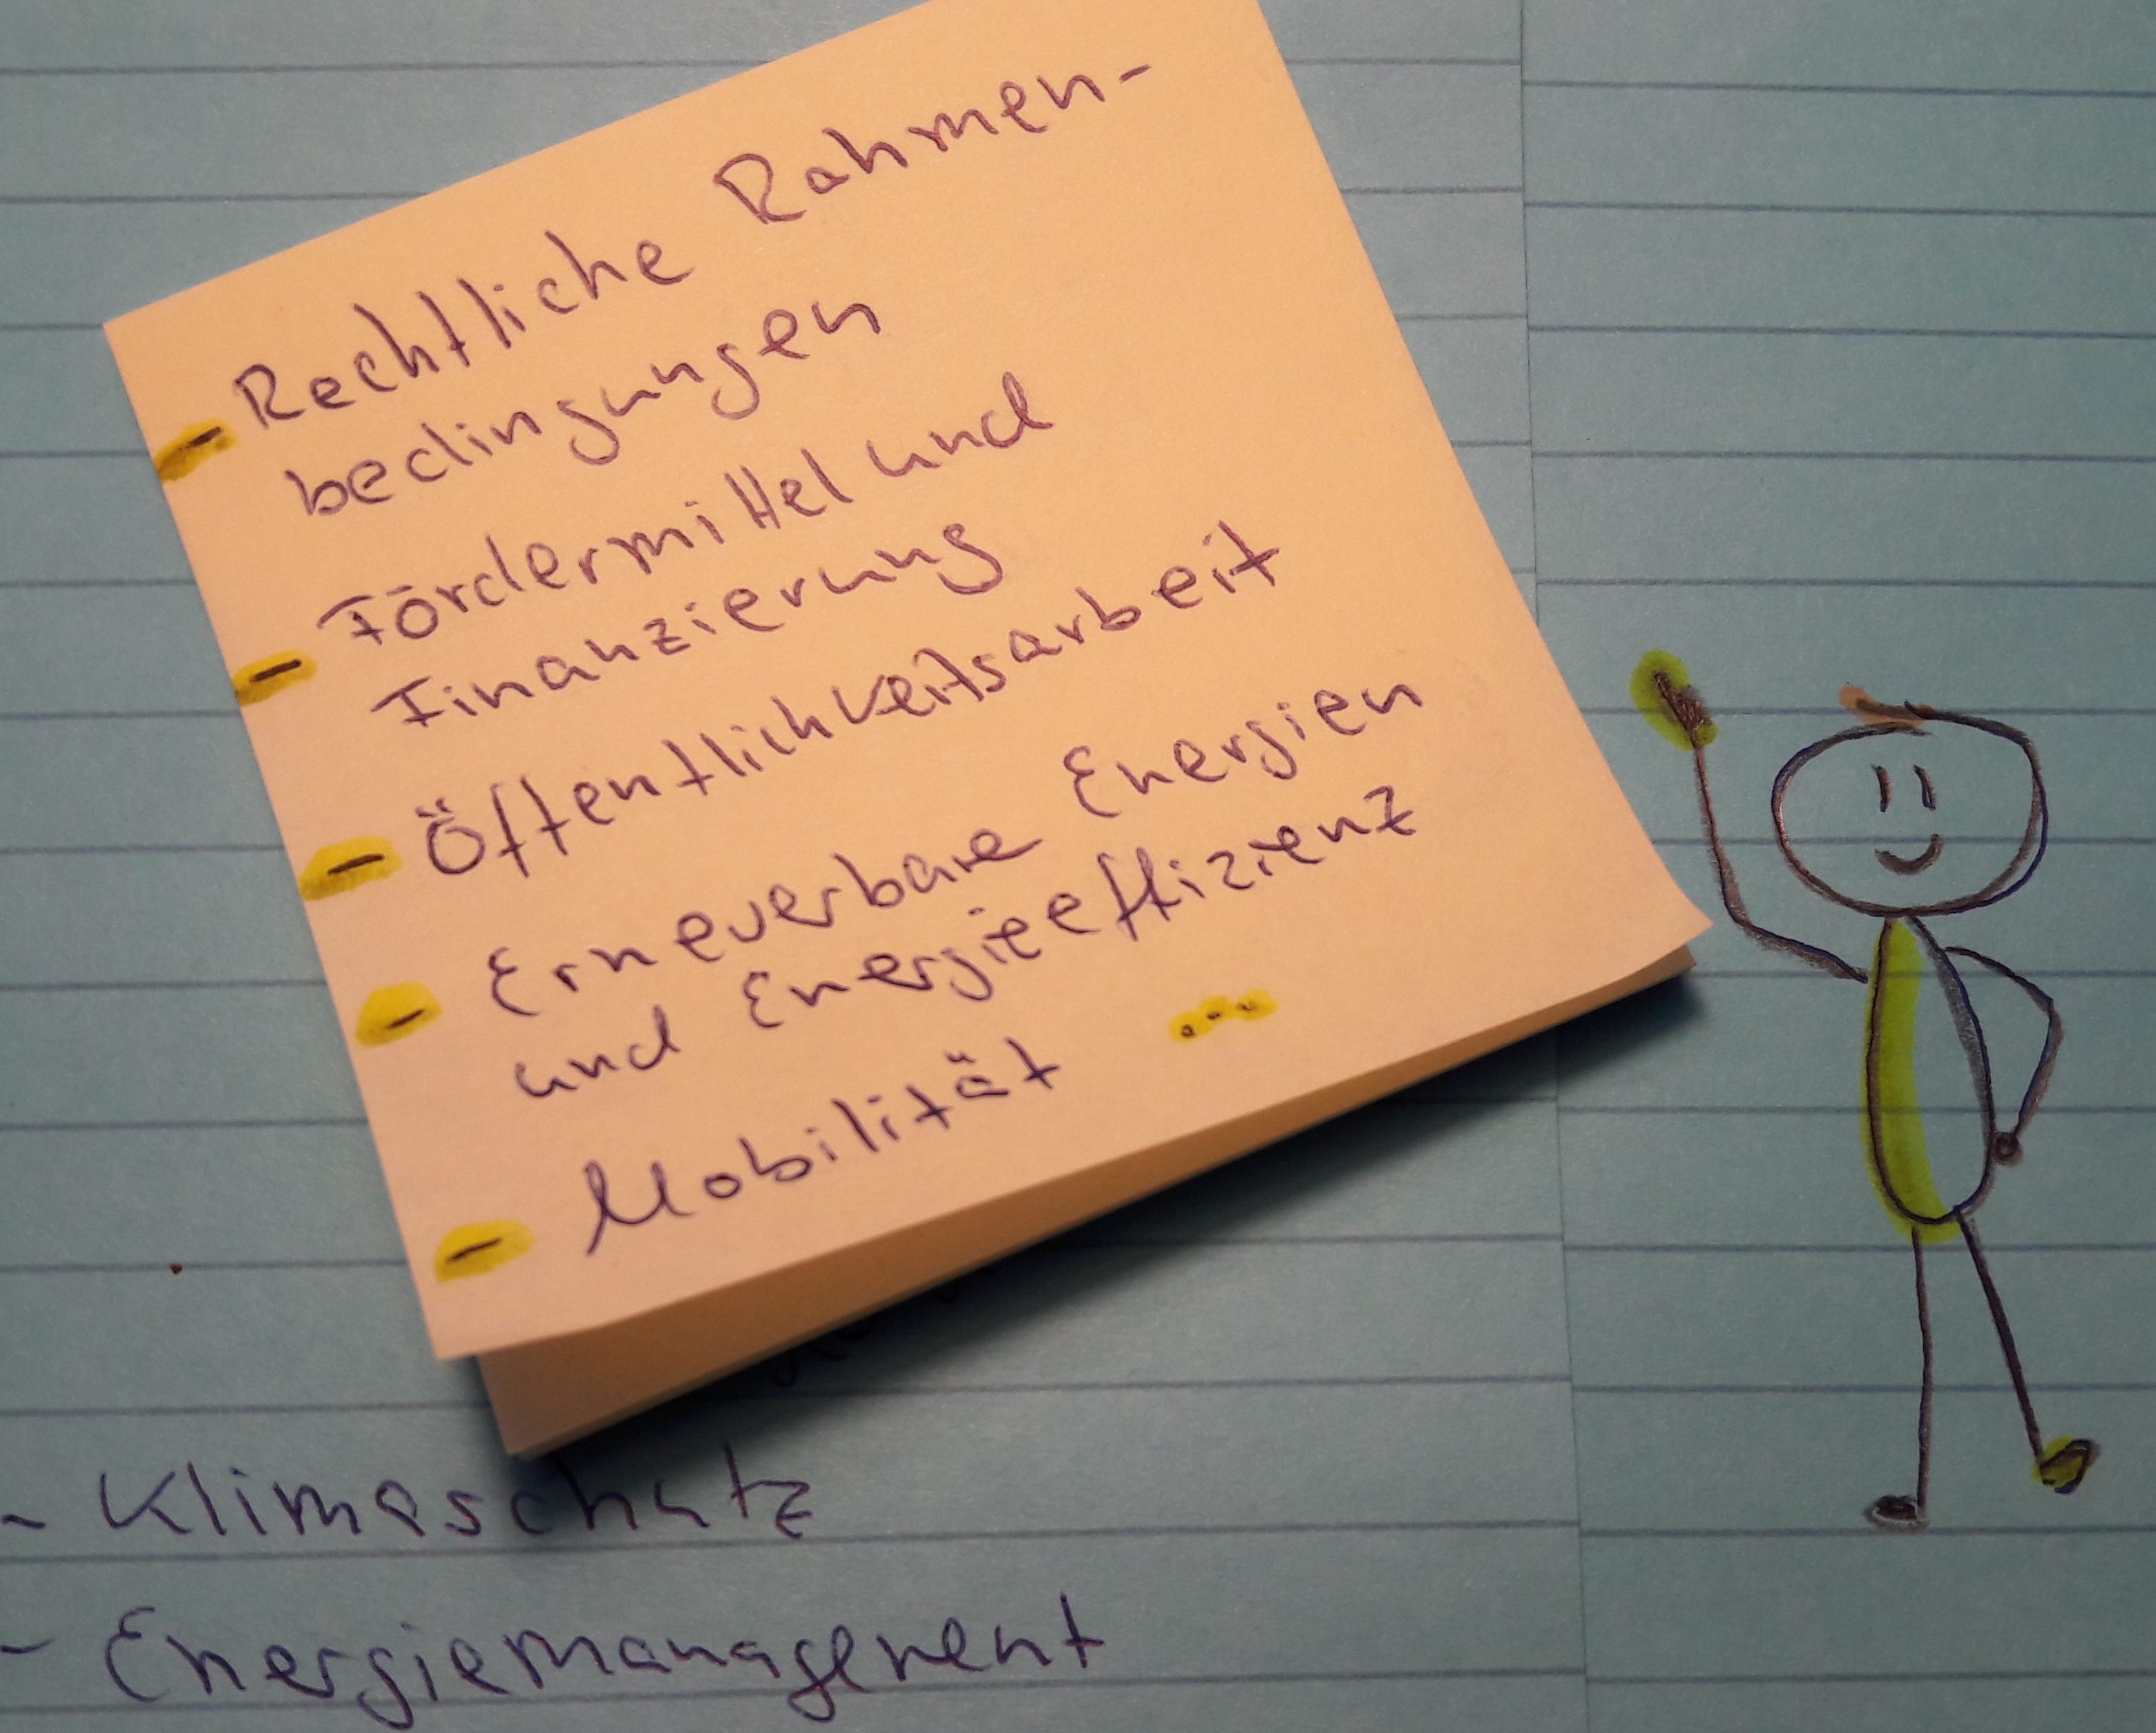 - Rechtliche Rahmen-
bedingungen
- Fördermittel und
Finanzierung
- Öffentlichkeitsarbeit
- Erneuerbare Energien
und Energieeffizienz
- Mobilität ...
- Klimaschutz
- Energiemanagement